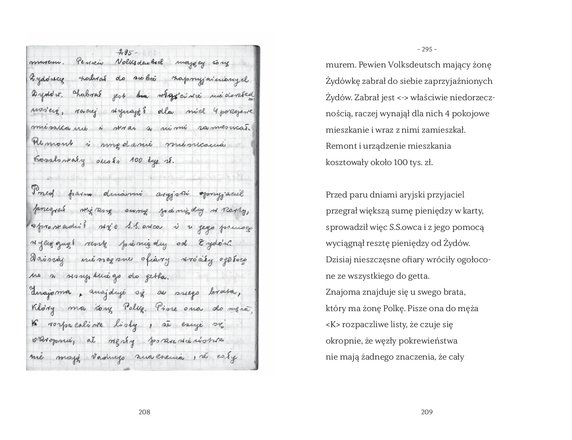 - 295 -
murem. Pewien Volksdeutsch mający żonę
Żydówkę zabrał do siebie zaprzyjaźnionych
Żydów. Zabrał jest właściwie niedorzecz-
nością, raczej wynajął dla nich 4 pokojowe
mieszkanie i wraz z nimi zamieszkał.
Remont i urządzenie mieszkania
kosztowały około 100 tys. zł.
Przed paru dniami aryjski przyjaciel
przegrał większą sumę pieniędzy w karty,
sprowadził więc S.S.owca i z jego pomocą
wyciągnął resztę pieniędzy od Żydów.
Dzisiaj nieszczęsne ofiary wróciły ogołoco-
ne z wszystkiego do getta.
Znajoma, znajduje się u swego brata,
który ma żonę Polkę. Pisze ona do męża
K rozpaczliwe listy, że czuje się
okropnie, że węzły pokrewieństwa
nie mają żadnego znaczenia, że cały
208
- 295 -
murem. Pewien Volksdeutsch mający żonę
Żydówkę zabrał do siebie zaprzyjaźnionych
Żydów. Zabrał jest <-> właściwie niedorzecz-
nością, raczej wynajął dla nich 4 pokojowe
mieszkanie i wraz z nimi zamieszkał.
Remont i urządzenie mieszkania
kosztowały około 100 tys. zł.
Przed paru dniami aryjski przyjaciel
przegrał większą sumę pieniędzy w karty,
sprowadził więc S.S.owca i z jego pomocą
wyciągnął resztę pieniędzy od Żydów.
Dzisiaj nieszczęsne ofiary wróciły ogołoco-
ne ze wszystkiego do getta.
Znajoma znajduje się u swego brata,
który ma żonę Polkę. Pisze ona do męża
<K> rozpaczliwe listy, że czuje się
okropnie, że węzły pokrewieństwa
nie mają żadnego znaczenia, że cały
209